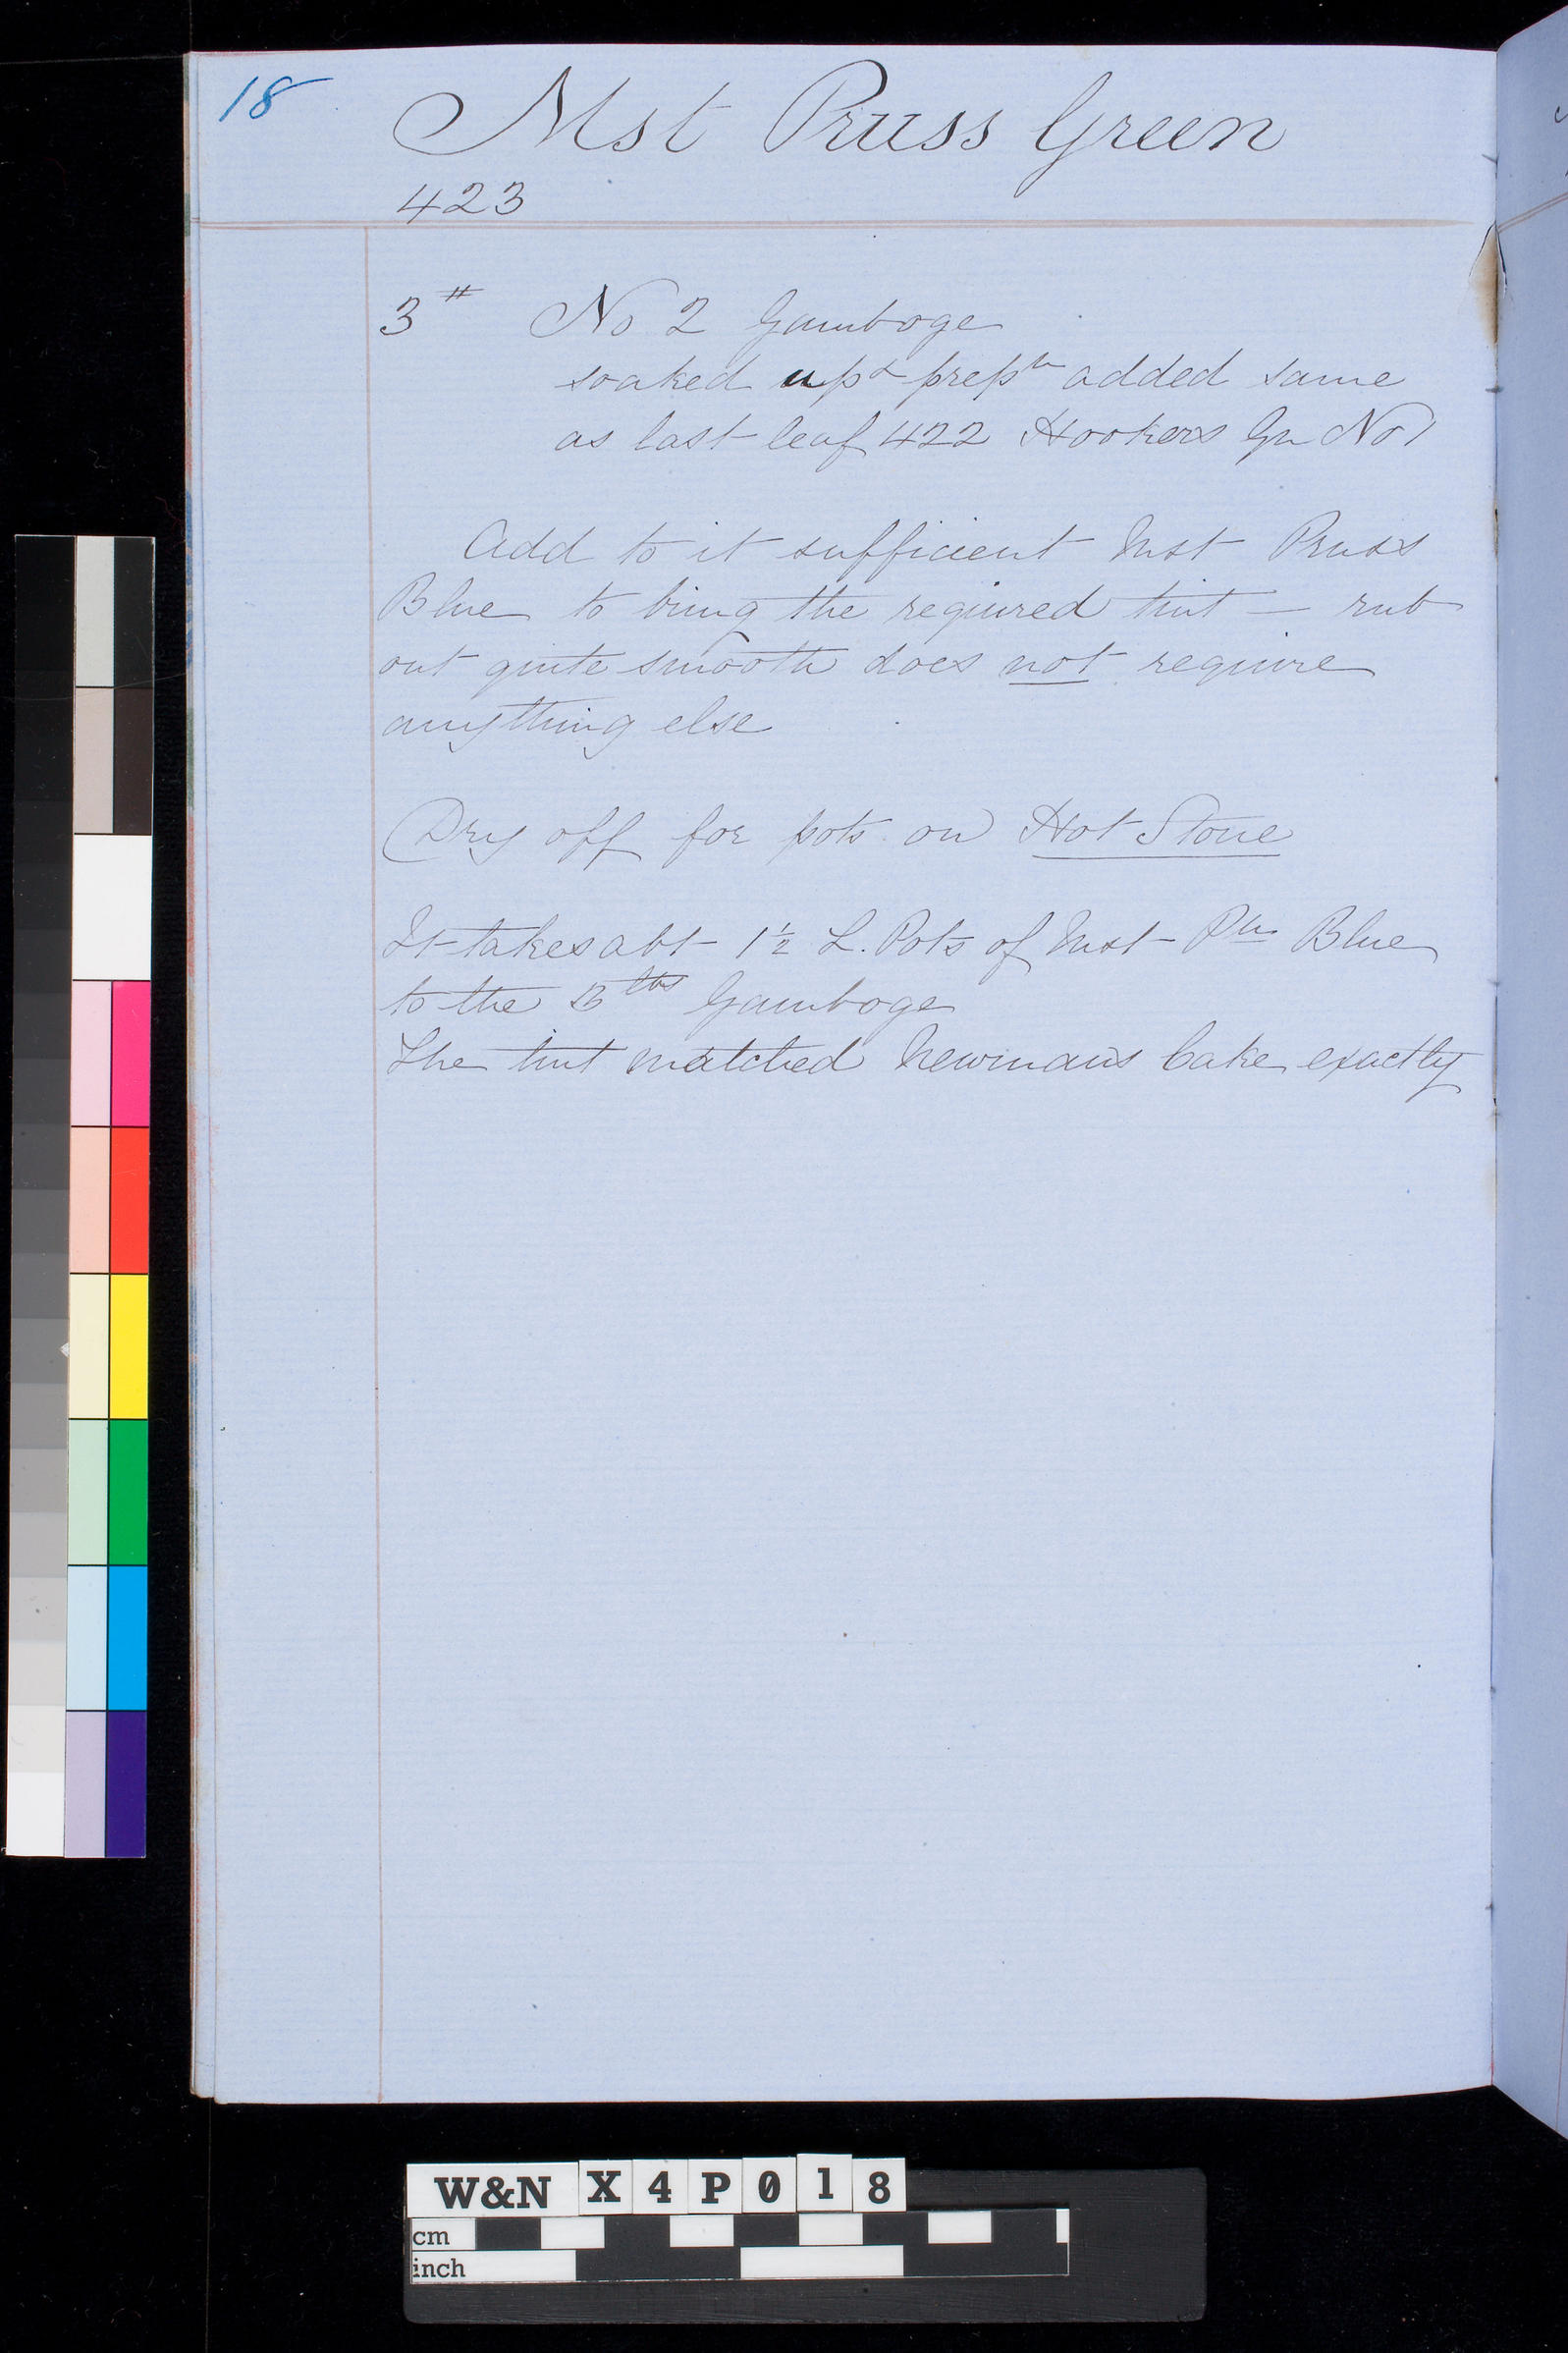 18
Mst Pruss Green
423
3# No 2 Gamboge
soaked up & prepn added same
as last leaf 422 Hookers Gn No 1
Add to it sufficient Mst Pruss
Blue to bring the required tint — rub
out quite smooth does not require
anything else
Dry off for pots on Hot Stone
It takes abt 1½ L. Pots of Mst Pn Blue
to the 3 lbs Gamboge
The tint matched Newmans Cake exactly
W&N X4P018
cm
inch